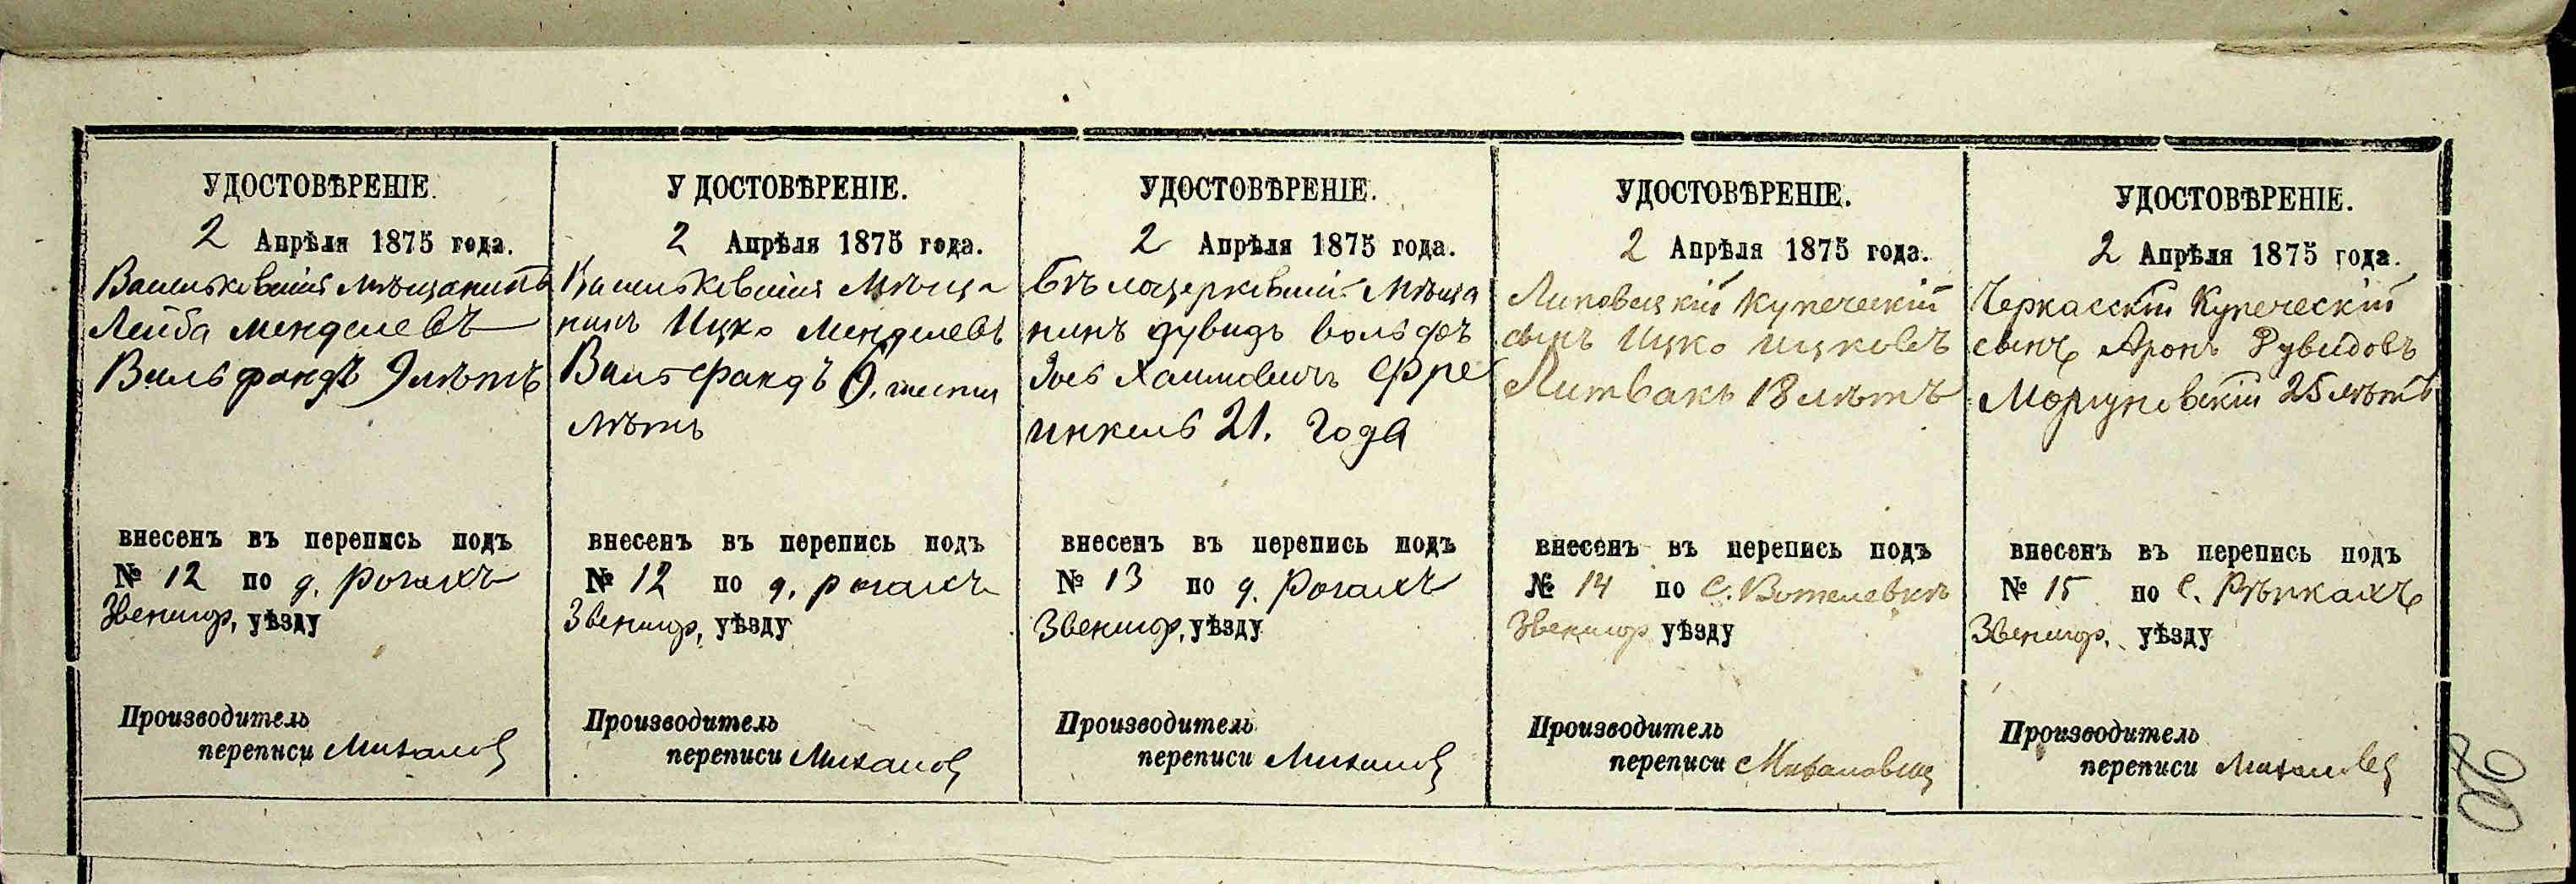 УДОСТОВѢРЕНІЕ.
2 Апрѣля 1875 года.
Васильковскій мѣщанинъ
Лейба Менделевъ
Вильфандъ 9 лѣтъ
внесенъ въ перепись подъ
№ 12 по д. Рогахъ
Звенигор, уѣзду
Производитель
переписи
У ДОСТОВѢРЕНІЕ.
2 Апрѣля 1875 года.
Васильковскій Мѣща
нинъ Ицко Менделевъ
Вильфандъ 6. шести
лѣтъ
внесенъ въ перепись подъ
№ 12 по д. рогахъ
Звенигор, уѣзду
Производитель
переписи
УДОСТОВѢРЕНІЕ.
2 Апрѣля 1875 года.
Бѣлоцерковскій Мѣща
нинъ дувидъ вольфъ
Хаимовичъ Фре
инкель 21. Года
внесенъ въ перепись подъ
№ 13 по д. Рогахъ
Звенигор, уѣзду
Производитель
переписи
УДОСТОВѢРЕНІЕ.
2 Апрѣля 1875 года.
Липовецкій Купеческій
сынъ Ицко ицковъ
Литвакъ 18 лѣтъ
внесенъ въ перепись подъ
№ 14 по С.
Звенигор уѣзду
Производитель
переписи
УДОСТОВѢРЕНІЕ.
2 Апрѣля 1875 года.
Черкасскій Купеческій
сынъ Аронъ Дувидовъ
25 лѣтъ
внесенъ въ перепись подъ
№ 15 по С. Рѣпкахъ
Звенигор. уѣзду
Производитель
переписи